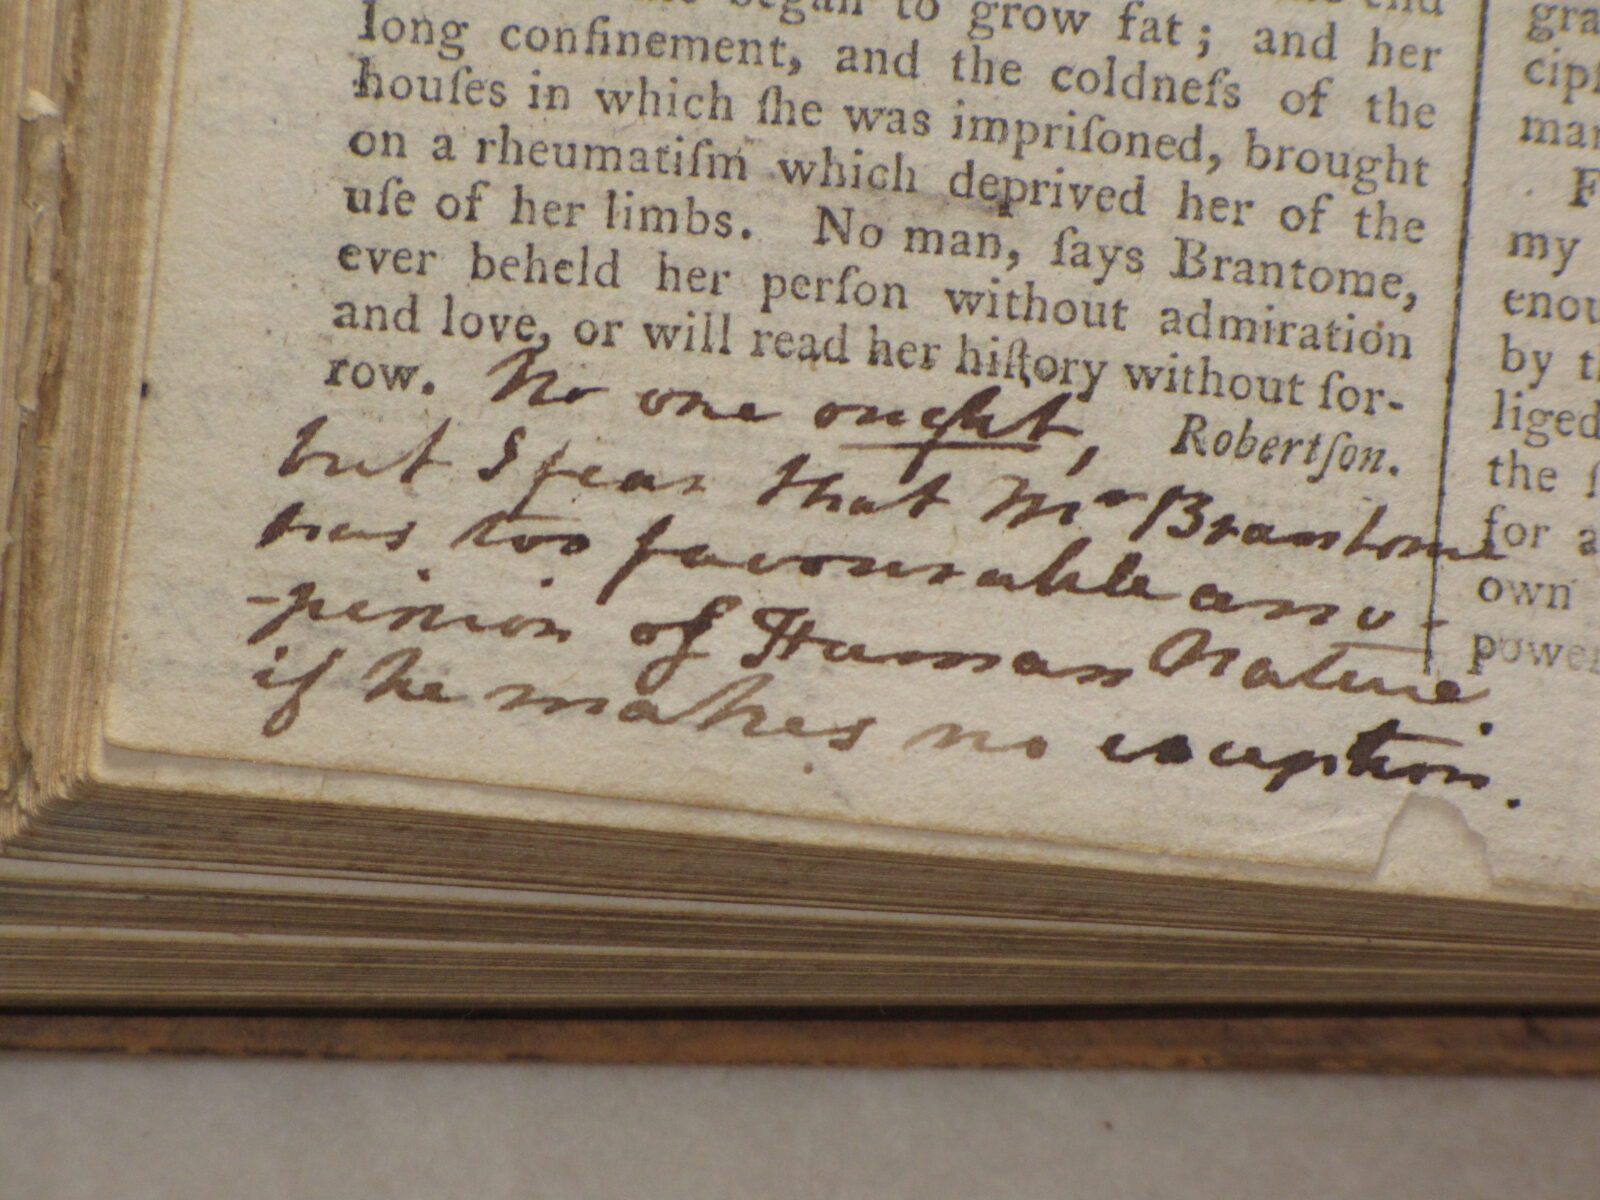 began to grow fat; and her
long confinement, and the coldneſs of the
houſes in which ſhe was impriſoned, brought
on a rheumatiſm which deprived her of the
uſe of her limbs. No man, ſays Brantome,
ever beheld her perſon without admiration
and love, or will read her hiſtory without ſor-
row.
Robertſon.
No one ought,
but I fear that Mr Brantome
has too favourable an o-
-pinion of Human Nature
if he makes no exception.
gra
cipſ
man
F
my
enou
by th
liged
the ſ
for a
own
power